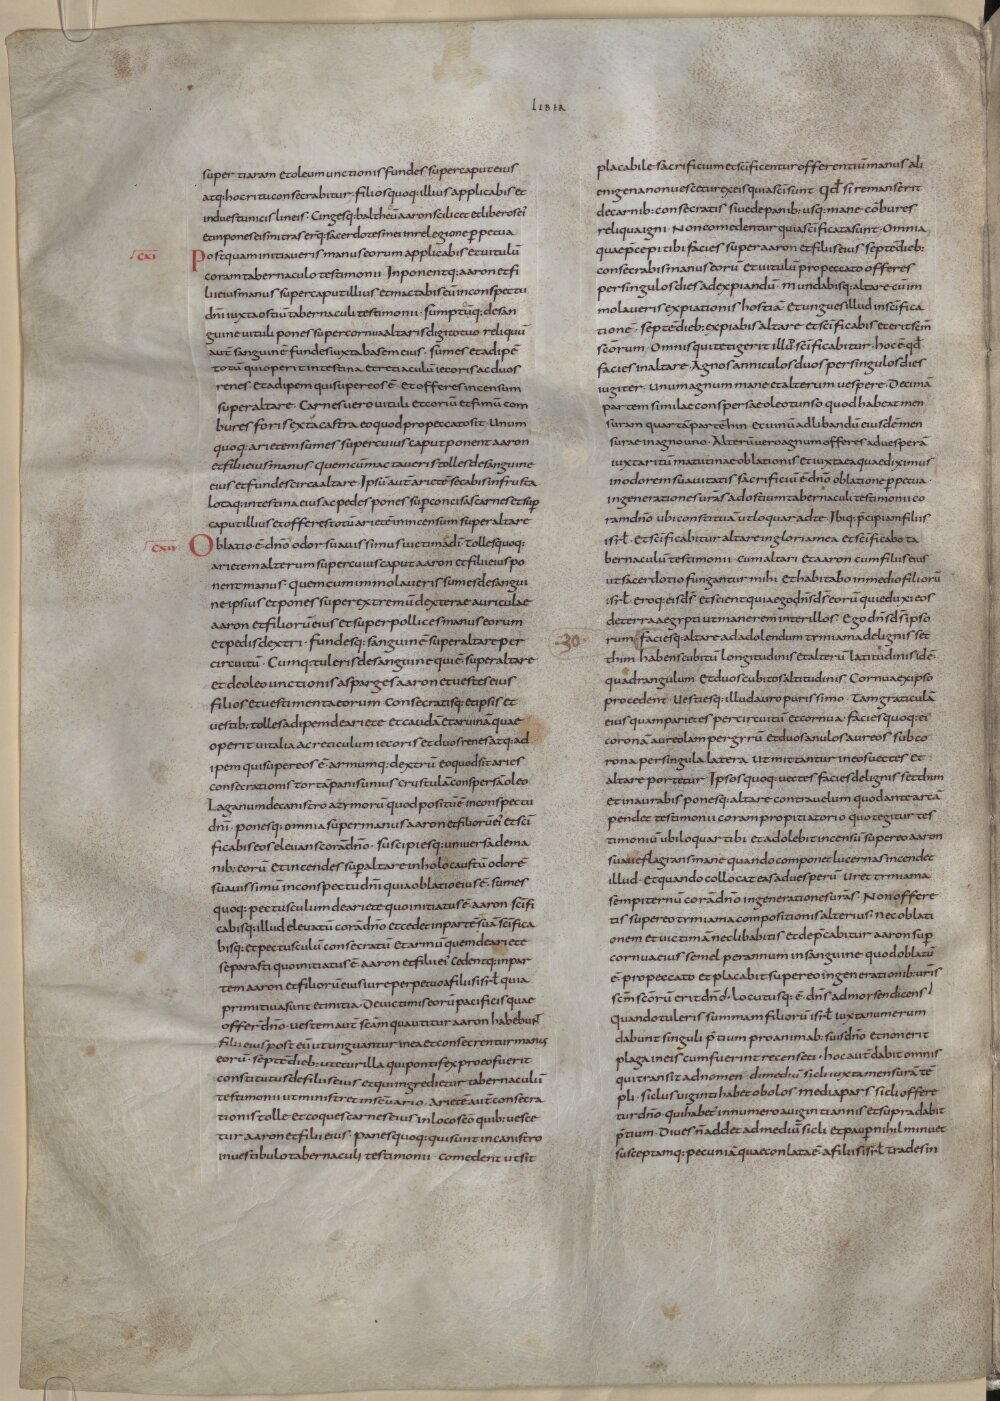 LIBER
super tiaram et oleum unctionis fundes super caput eius
atq; hoc ritu consecrabitur. filios quoq; illius applicabis et
indues tunicis lineis. Cingesq; baltheū aaron scilicet et liberos ei
et inpones eis mitras erq; sacerdotes mei in relegione perpetua
CXI
Postquam initiaueris manus eorum applicabis et uitulū
coram tabernaculo testimonii. Inponentq; aaron et fi
lii eius manus super caput illius et mactabis eū in conspectu
dn̄i iuxta ostiū tabernaculi testimonii. sumptūq; de san
guine uituli pones super cornua altaris digito tuo reliquū
autē sanguinē fundes iuxta basem eius. sumes et adipē
totū qui operit intestina et reticulū iecoris ac duos
renes et adipem qui super eos ē. et offeres incensum
super altare. Carnes uero uituli et coriū et fimū com
bures foris extra castra eo quod pro peccato sit. Unum
quoq; arietem sumes super cuius caput ponent aaron
et filii eius manus quem cū mactaueris tolles de sanguine
eius et fundes circa altare. Ipsū autē arietē secabis in frusta
lotaq; intestina eius ac pedes pones sup concisas carnes et sup
caput illius et offeres totū arietē in incensum super altare
CXII
Oblatio ē dn̄o odor suauissimus uictimae dn̄i. Tolles quoq;
arietem alterum super cuius caput aaron et filii eius po
nent manus. quem cum immolaueris sumes de sangui
ne ipsius et pones super extremū dexterae auriculae
aaron et filiorū eius et super pollices manus eorum
et pedis dextri. fundesq; sanguinē super altare per
circuitū. Cumq; tuleris de sanguine qui ē super altare
et de oleo unctionis asparges aaron et uestes eius
filios et uestimenta eorum. Consecratisq; et ipsis et
uestib; tolles adipem de ariete et caudā et aruinā quae
operit uitalia ac reticulum iecoris et duos renes atq; ad
ipem qui super eos ē. armumq; dextrū eo quod sit aries
consecrationis tortā panis unius crustulā conspersā oleo
Laganum de canistro azymorū quod positū ē in conspectu
dn̄i. ponesq; omnia super manus aaron et filiorū ei et sc̄i
ficabis eos eleuans corā dn̄o. suscipiesq; uniuersa de ma
nib; eorū et incendes sup altare in holocaustū odorē
suauissimū in conspectu dn̄i quia oblatio eius ē. sumes
quoq; pectusculum de ariete quo initiatus ē aaron sc̄ifi
cabisq; illud eleuatū corā dn̄o et cedet in partē tuā sc̄ifica
bisq; et pectusculū consecratū et armū quem de ariete
separasti quo initiatus ē aaron et filii ei. Cedentq; in par
tem aaron et filiorū eius iure perpetuo a filiis isrł quia
primitiua sunt et initia. De uictimis eorū pacificis quae
offer dn̄o. uestem autē sc̄am qua utitur aaron habebunt
filii eius post eū ut unguantur in ea et consecrentur manus
eorū. septē dieb; utetur illa qui pontifex pro eo fuerit
constitutus de filiis eius et qui ingredietur tabernaculū
testimonii ut ministret in sc̄uario. Arietē autē consecra
tionis tolle et coques carnes eius in loco sc̄o quib; uesce
tur aaron et filii eius. panes quoq; qui sunt in canistro
in uestibulo tabernaculi testimonii comedent ut sit
placabile sacrificium et sc̄ificentur offerentiū manus ali
enigena non uescetur ex eis quia sc̄i sunt. Qd si remanserit
de carnib; consecratis siue de panib; usq; mane cōbures
reliqua igni. Non comedentur quia sc̄ificata sunt. Omnia
quae p̄cepi tibi facies super aaron et filiis eius septē dieb;
consecrabis manus eorū et uitulū pro peccato offeres
per singulos dies ad expiandū. mundabisq; altare cū im
molaueris expiationis hostiā et ungues illud in sc̄ifica
tione. septē dieb; expiabis altare et sc̄ificabis et erit sc̄m
sc̄orum. Omnis qui tetigerit illud sc̄ificabitur. hoc ē qđ
facies in altare. Agnos anniculos duos per singulos dies
iugiter. unum agnum mane et alterum uespere. Decimā
partem similae conspersae oleo tunso quod habeat men
suram quartā partē hin. et uinū ad libandū eiusdē men
surae in agno uno. Alterū uero agnum offeres ad uesperā
iuxta ritū matutinae oblationis et iuxta ea quae diximus
in odorem suauitatis sacrificiū ē dn̄o oblatione perpetua
in generatione uras ad ostium tabernaculi testimonii co
ram dn̄o ubi constituā ut loquar ad te. Ibiq; p̄cipiam filiis
isrł. et sc̄ificabitur altare in gloria mea et sc̄ificabo ta
bernaculū testimonii cum altari et aaron cum filiis eius
ut sacerdotio fungantur mihi. et habitabo in medio filiorū
isrł. eroq; eis ds̄ et scient quia ego dn̄s ds̄ eorū qui eduxi eos
de terra aegypti ut manerem inter illos. Ego dn̄s ds̄ ipso
30
rum faciesq; altare ad adolendum tymiama de lignis set
thim habens cubitū longitudinis et alterū latitudinis idē
quadrangulum et duos cubitos altitudinis. Cornua ex ipso
procedent. Uestiesq; illud auro purissimo. Tam graticulā
eius quam parietes per circuitū et cornua. facies quoq; ei
coronā aureolam per gyrū et duos anulos aureos sub co
rona per singula latera ut mittantur in eos uectes et
altare portetur. Ipsos quoq; uectes facies de lignis setthim
et inaurabis ponesq; altare contra uelum quod ante arcā
pendet testimonii coram propitiatorio quo tegitur tes
timoniū ubi loquar tibi et adolebit incensū super eo aaron
suaue flagrans mane quando componet lucernas incendet
illud. et quando collocat eas ad uesperū uret tymiama
sempiternū corā dn̄o in generatione suras. Non offere
tis super eo tymiama compositionis alterius nec oblati
onem et uictimā nec libabitis et dep̄cabitur aaron sup
cornua eius semel per annum in sanguine quod oblatū
ē pro peccato et placabit super eo in generationib; uris
sc̄m sc̄orū erit dn̄o. locutusq; ē dn̄s ad moysen dicens
Quando tuleris summam filiorū isrł iuxta numerum
dabunt singuli p̄tium pro animab; suis dn̄o et non erit
plaga in eis cum fuerint recensiti. hoc autē dabit omnis
qui transit ad nomen dimediū sicli iuxta mensurā tē
pli. siclus uiginti habet obolos. media pars sicli offere
tur dn̄o. qui habet in numero a uiginti annis et supra dabit
p̄tium. Diues n̄ addet ad mediū sicli et pauper nihil minuet
susceptamq; pecuniā quae conlata ē a filiis isrł trades in